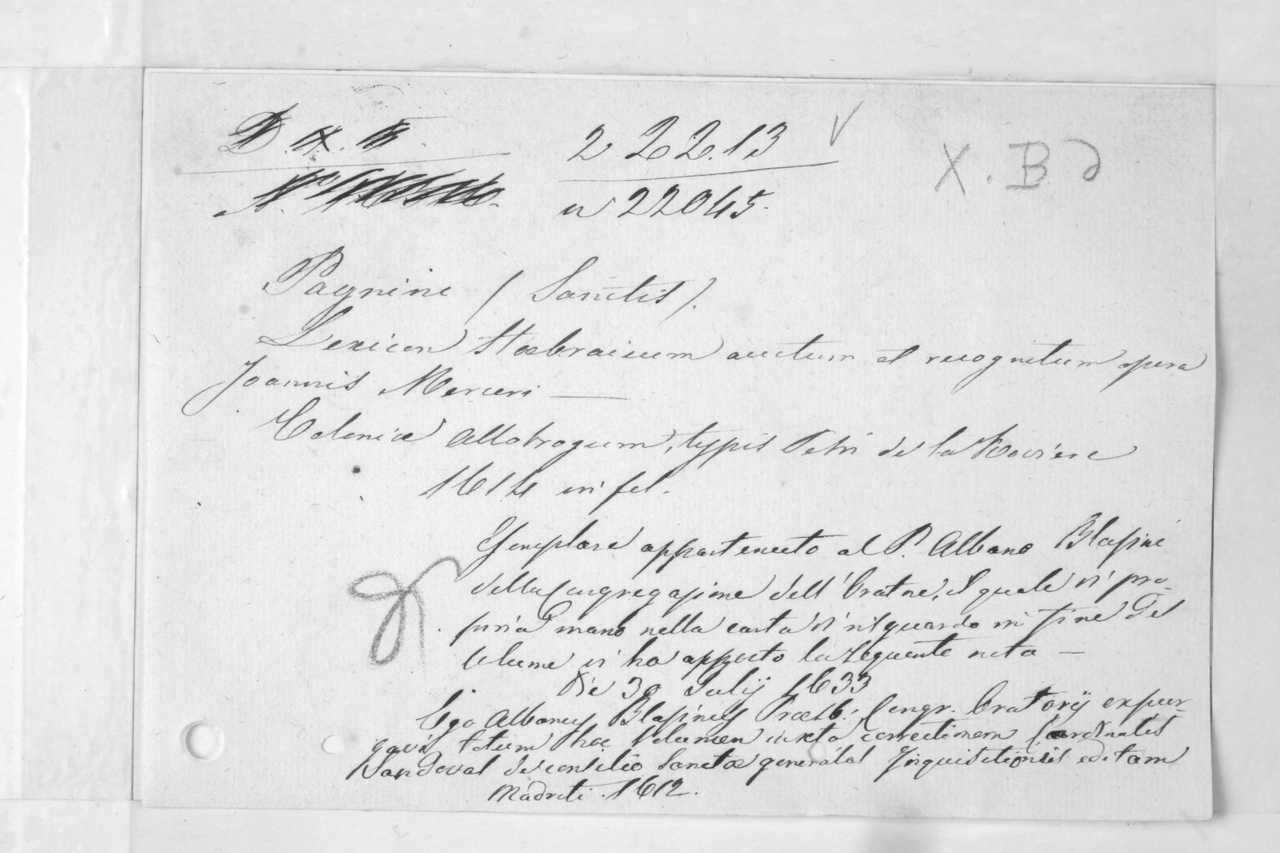 D. X. II.
2 22.13
X. B d
n 22045.
Pagnini (Sanctis).
Lexicon Hoebraicum auctum et recognitum opera
Joannis Merceri —
Coloniæ Allobrogum, typis Petri de la Roviere
1614 in fol.
Esemplare appartenuto al P. Albano Blasini
della Congregazione dell' Oratorio, il quale di pro-
pria mano nella carta di risguardo in fine del
volume vi ha apposto la seguente nota —
Die 30 Julij 1633
Ego Albanus Blasinus Præsb. Congr. Oratorij expur-
gavi totum hoc volumen iuxta correctionem Cardinalis
Sandoval de consilio Sanctæ generalis Inquisitionis editam
Madriti. 1612.